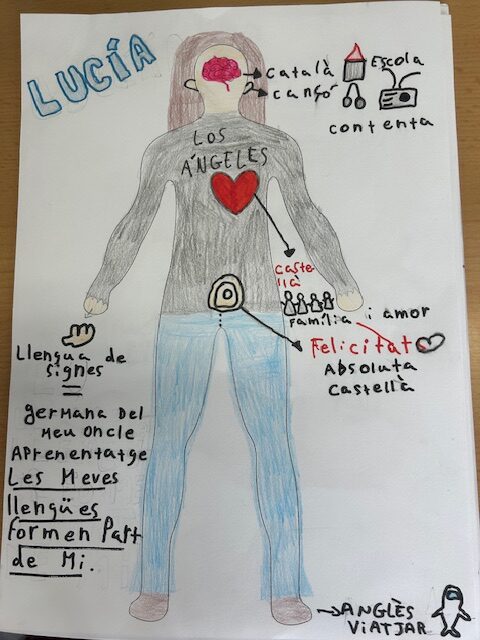 LUCÍA
català
Escola
cançó
contenta
LOS
ÁNGELES
Caste-
llà
Família i amor
Felicitat
Absoluta
castellà
Llengua de
signes
=
germana Del
Meu oncle
Aprenentatge
Les Meves
llengües
formen Part
de Mi.
ANGLÈS
ViATJAR